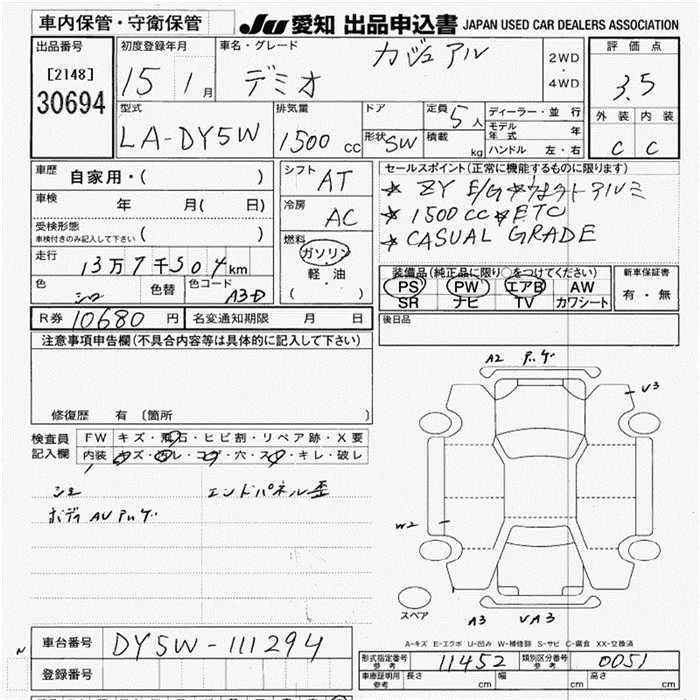 車内保管・守衛保管
JU 愛知 出品申込書 JAPAN USED CAR DEALERS ASSOCIATION
出品番号
[2148]
30694
初度登録年月
15 1 月
車名・グレード
デミオ カジュアル
2WD
・
4WD
評価点
3.5
外装 内装
C C
型式
LA-DY5W
排気量
1500 CC
ドア
形状 SW
定員 5 人
積載 kg
ディーラー・並行
モデル年式 年
ハンドル 左・右
車歴
自家用・( )
車検 年 月( 日)
受検形態
車検付きのみ記入して下さい ( )
走行
13万7千504 km
色
シロ
色替
色コード
A3D
シフト
AT
冷房
AC
燃料
ガソリン
軽・油
( )
セールスポイント(正常に機能するものに限ります)
ZY E/G アルミ
1500CC ETC
CASUAL GRADE
装備品(純正品に限り○をつけてください)
PS PW エアB AW
SR ナビ TV カワシート
新車保証書
有・無
R券 10680 円
名変通知期限 月 日
後日品
注意事項申告欄(不具合内容等は具体的に記入して下さい)
修復歴 有〔箇所 〕
検査員
記入欄
FW キズ・飛石・ヒビ割・リペア跡・X要
内装 キズ・汚レ・コゲ・穴・スレ・キレ・破レ
エンドパネル歪
ボディ AU
A2
V3
W2
A3 VA3
スペア
A-キズ E-エクボ U-凹み W-補修跡 S-サビ C-腐食 XX-交換済
車台番号 DY5W-111294
登録番号
形式指定番号
参考
11452
類別区分番号
参考
0051
車庫証明用
参考
長さ cm 幅 cm 高さ cm